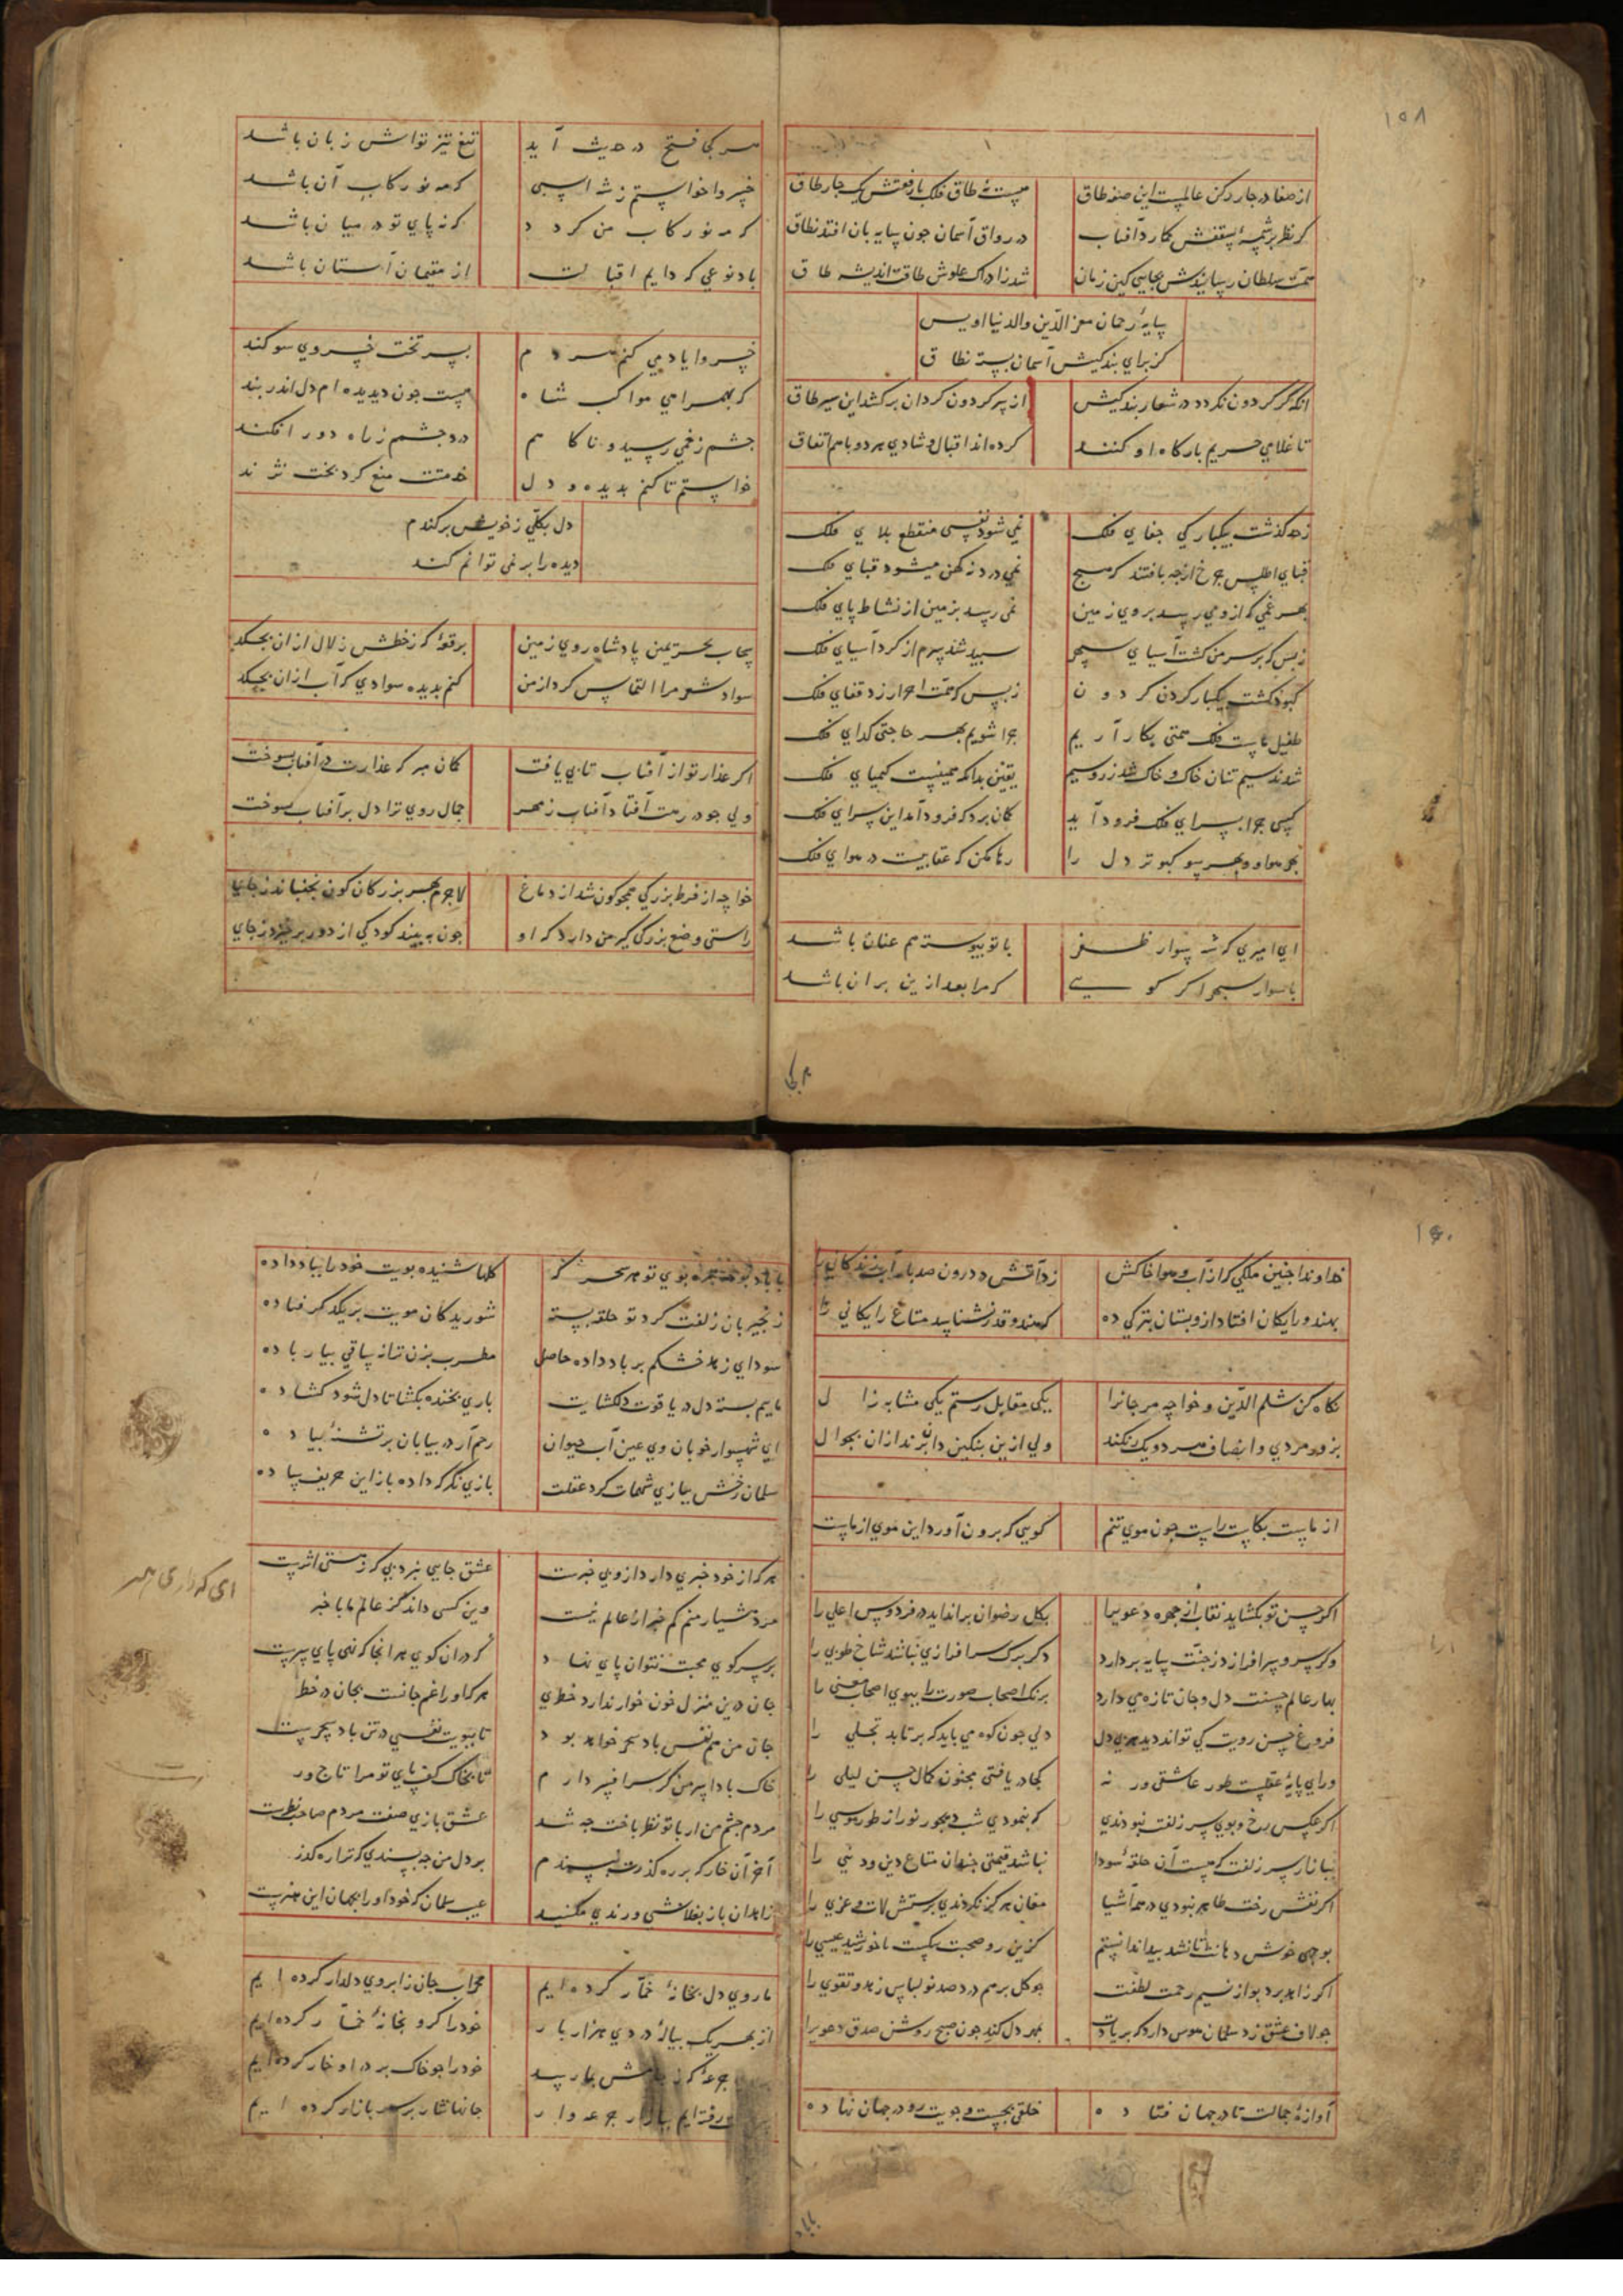 ۱۵۸
از صفا در چار رکن عالمست این صفه طاق هست نه طاق فلک با رفعتش یک چار طاق
گر نظر بر شمسهٔ سقفش گمارد آفتاب در رواق آسمان چون سایه بان افتد نطاق
همت سلطان رسانیدش بجایی کین زمان شد ز ادراک علوش طاقت اندیشه طاق
سایهٔ رحمان معز الدین والدنیا اویس
کز برای بندگیش آسمان بسته نطاق
انکه گر گردون نگردد در شعار بندگیش از سر گردون گردان برکشد این سیر طاق
تا غلامی حریم بارگاه او کنند کرده اند اقبال و شادی هر دو باهم اتفاق
زحد گذشت بیکبارگی جفای فلک نمی شود نفسی منقطع بلای فلک
قبای اطلس چرخ از چه بافتند که هیچ نمی درد نه کهن میشود قبای فلک
بهر غمی که ازو می رسد بروی زمین نمی رسد بزمین از نشاط پای فلک
زبس که بر سر من گشت آسیای سپهر سپید شد سرم از گرد آسیای فلک
کبود گشت بیکبار گردن گردون زبس که همت احرار زد قفای فلک
طفیل ماست فلک همتی بکار آریم چرا شویم بهر حاجتی گدای فلک
شدند سیم تنان خاک و خاک شد زر و سیم یقین بدانکه همینست کیمیای فلک
کسی چرا بسرای فلک فرود آید گمان برد که فرود آمد این سرای فلک
بهر هوا و بهر سو کبوتر دل را رها مکن که عقابیست در هوای فلک
ای امیری که شهسوار ظفر با تو پیوسته هم عنان باشد
با سوار سپهر اگر گویی که مرا بعد ازین بران باشد
هر کجا فتح در حدیث آید تیغ تیز تواش زبان باشد
خسروا خواستم ز شه اسپی که مه نو رکاب آن باشد
که مه نو رکاب من گردد که نه پای تو در میان باشد
باد نوعی که دایم اقبالت از مقیمان آستان باشد
خسروا یاد می کنم هر دم بسر تخت خسروی سوگند
که بهمراهی مواکب شاه هست چون دیدیده ام دل اندر بند
چشم زخمی رسید و ناکاهم دو چشمم ز راه دور افکند
خواستم تا کنم بدیده و دل خدمتت منع کرد بخت نژند
دل بکلی ز خویش برکندم
دیده را بر نمی توانم کند
سحاب بحر یمین پادشاه روی زمین برقعهٔ که ز خطش زلال ازان بچکد
سواد شعر مرا التماس کرد از من کنم بدیده سوادی که آب ازان بچکد
اگر عذار تو از آفتاب تابی یافت گمان مبر که عذارت در آفتاب بسوخت
ولی چو در رخت افتاد آفتاب ز مهر جمال روی ترا دل بر آفتاب بسوخت
خواجه از فرط بزرگی همچو کون شد از دماغ لاجرم بهر بزرگان کون نجنباند ز جای
راستی وضع بزرگی کیر من دارد که او چون ببیند کودکی از دور برخیزد ز جای
۱۶۰
خداوندا چنین ملکی که از آب و هوا خاکش زد آتش در درون صد بار آب زندگانی را
بهندو رایگان افتاد از و بستان بترکی ده که هندو قدر نشناسد متاع رایگانی را
نگاه کن شلم الدین و خواجه مرجانرا یکی مقابل رستم یکی مشابه زال
بزور مردی و انصاف هر دو یک رنگند ولی ازین بنگین دانبرند ازان بجوال
از ماست بکاست راست چون موی تنم گویی که برون آورد این موی از ماست
اگر حسن تو بگشاید نقاب از چهره دعویرا بگل رضوان براندایَد در فردوس اعلی را
وگر سرو سرافراز در جنت سایه بردارد دگر برگ سرافرازی نباشد شاخ طوبی را
بهار عالم حسنت دل و جان تازه می دارد برنگ اصحاب صورت را ببوی اصحاب معنی را
فروغ حسن رویت کی تواند دید هر بی دل دلی چون کوه می باید که بر تابد تجلی را
ورای پایهٔ عقلست طور عاشقی ور نه کجا دریافتی مجنون کمال حسن لیلی را
اگر عکس رخ و بوی سر زلفت نبودندی که بنمودی شب دیجور نور از طور موسی را
ببازار سر زلفت که هست آن حلقهٔ سودا نباشد قیمتی چندان متاع دین و دنیی را
اگر نقش رخت ظاهر نبودی در همه اشیا مغان هرگز نکردندی پرستش لات و عزی را
بوجهی خوش دهانت تا نشد پیدا ندانستم کزین رو صحبت یکیست با خورشید عیسی را
اگر زاهد برد بو از نسیم رحمت لطفت چو گل برهم درد صد تو لباس زهد و تقوی را
چو لاف عشق زد سلمان هوس دارد که بر یادت بمهر دل کند چون صبح روشن صدق دعویرا
آوازهٔ جمالت تا در جهان فتاده خلقی بجست و جویت رو در جهان نهاده
بوی تو هر سحر گه گلها شنیده بویت خود را بباد داده
زنجیربان زلفت گرد تو حلقه بسته شوریدگان مویت بر یکدگر فتاده
سودای زهد خشکم بر باد داده حاصل مطرب بزن ترانه ساقی بیار باده
ماییم بسته دل در یاقوت دلگشایت باری بخنده بگشا تا دل شود گشاده
ای شهسوار خوبان وی عین آب حیوان رحم آر در بیابان بر تشنهٔ پیاده
سلمان رخش ببازی شهمات کرد عقلت بازی نگر که داده باز این حریف ساده
هر که از خود خبری دارد ازو بی خبرست عشق جایی نبرد پی که ز هستی اثرست
مرد هشیار منم کم خبر از عالم نیست وین کسی داند کز عالم ما با خبر
بر سر کوی محبت نتوان پای نهاد که دران کوی هر انجا که نهی پای سرست
جان درین منزل خون خوار ندارد خطری هر که او را غم جانست بجان در خطر
جان من هم نفس باد سحر خواهد بود تا ببویت نفسی در تن باد سحرست
خاک بادا سر من گر سر افسر دارم تا بخاک کف پای تو مرا تاج ور
مردم چشم من ار با تو نظر باخت چه شد عشق بازی صفت مردم صاحب نظرست
آخر آن خار که بر ره گذرت نپسندم بر دل من چه پسندی که ترا رهگذر
زاهدان باز بقلاشی و رندی مکنید عیب سلمان که خود او را بجهان این هنرست
ای که داری
ما روی دل بخانهٔ خمار کرده ایم محراب جان ز ابروی دلدار کرده ایم
از بهر یک پیالهٔ دردی هزار بار خود را گرو بخانهٔ خمار کرده ایم
جرعهٔ ما رسد خود را چو خاک بر در او خار کرده ایم
رفته ایم جرعه وار جانها نثار بر سر بازار کرده ایم